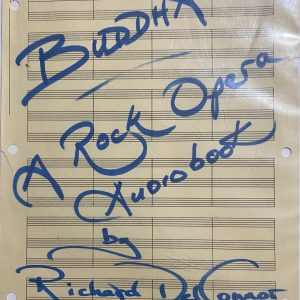 BUDDHA
A Rock Opera
Audiobook
by
Richard Del Connor